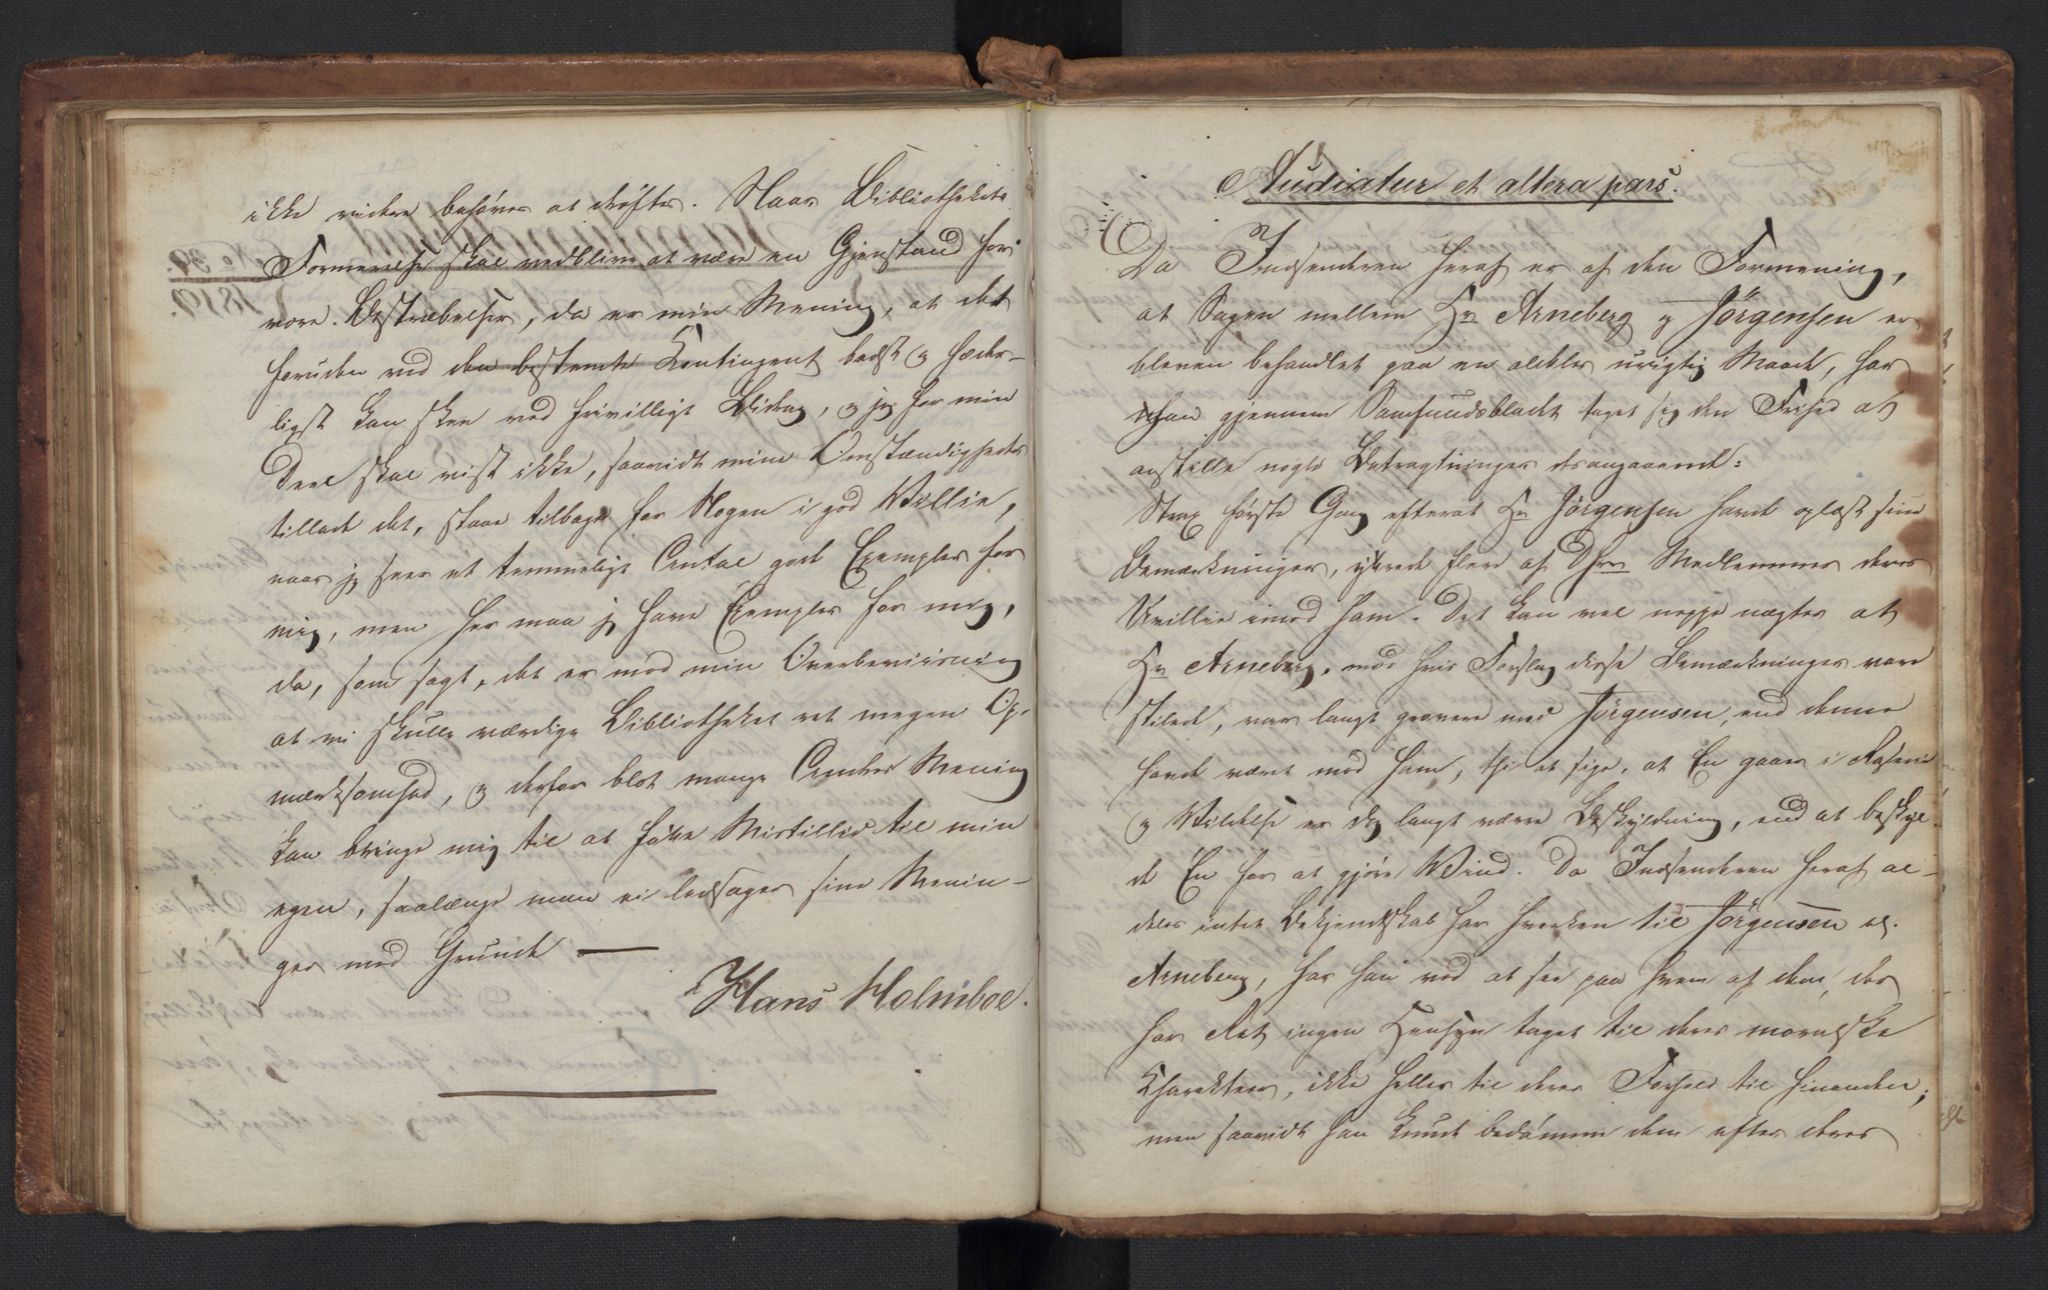 ikke videre behøver at drøftes. Naar Bibliothekets
Formerelse skal vedblive at være en Gjenstand for
vore Bestræbelser, da er min Mening, at det
foruden ved den bestemte Contingent bedst og hæder-
ligst kan skee ved frivilligt Bidrag, og jeg for min
Deel skal vist ikke, saavidt mine Omstændigheder
tillade det, staae tilbage for Nogen i god Villie,
naar jeg seer et temmeligt Antal gode Exempler for
mig, men her maa jeg have Exempler for mig,
da, som sagt, det er mod min Overbeviisning
at vi skulle værdige Bibliotheket ret megen Op-
mærksomhed, og derfor blot mange Andres Mening
kan bringe mig til at fatte Mistillid til min
egen, saalænge man ei ledsager sine Menin-
ger med Grunde —
Hans Holmboe.
No 39.
1819.
Audiatur et altera pars.
Da Indsenderen heraf er af den Formening,
at Sagen mellem Hr Arneberg og Jörgensen er
bleven behandlet paa en aldeles urigtig Maade, har
han gjennem Samfundsbladet taget sig den Frihed at
anstille nogle Betragtninger desangaaende:
Strax første Gang efterat Hr Jörgensen havde oplæst sine
Bemærkninger, yttrede flere af DHrr Medlemmer deres
Uvillie imod ham. Det kan vel neppe nægtes at
Hr Arneberg, mod hvis Forslag disse Bemærkninger vare
stilede, var langt grovere mod Jörgensen, end denne
havde været mod ham, thi at sige, at En gaaer i Raseri
og Vildelse er dog langt værre Beskyldning, end at beskyl-
de En for at gjöre Vind. Da Indsenderen heraf al-
deles intet Bekjendtskab har hverken til Jörgensen el.
Arneberg, har han ved at see paa hvem af dem, der
har Ret ingen Hensyn taget til deres moralske
Charakteer, ikke heller til deres Forhold til hinanden;
men saavidt han kunde bedömme dem efter deres